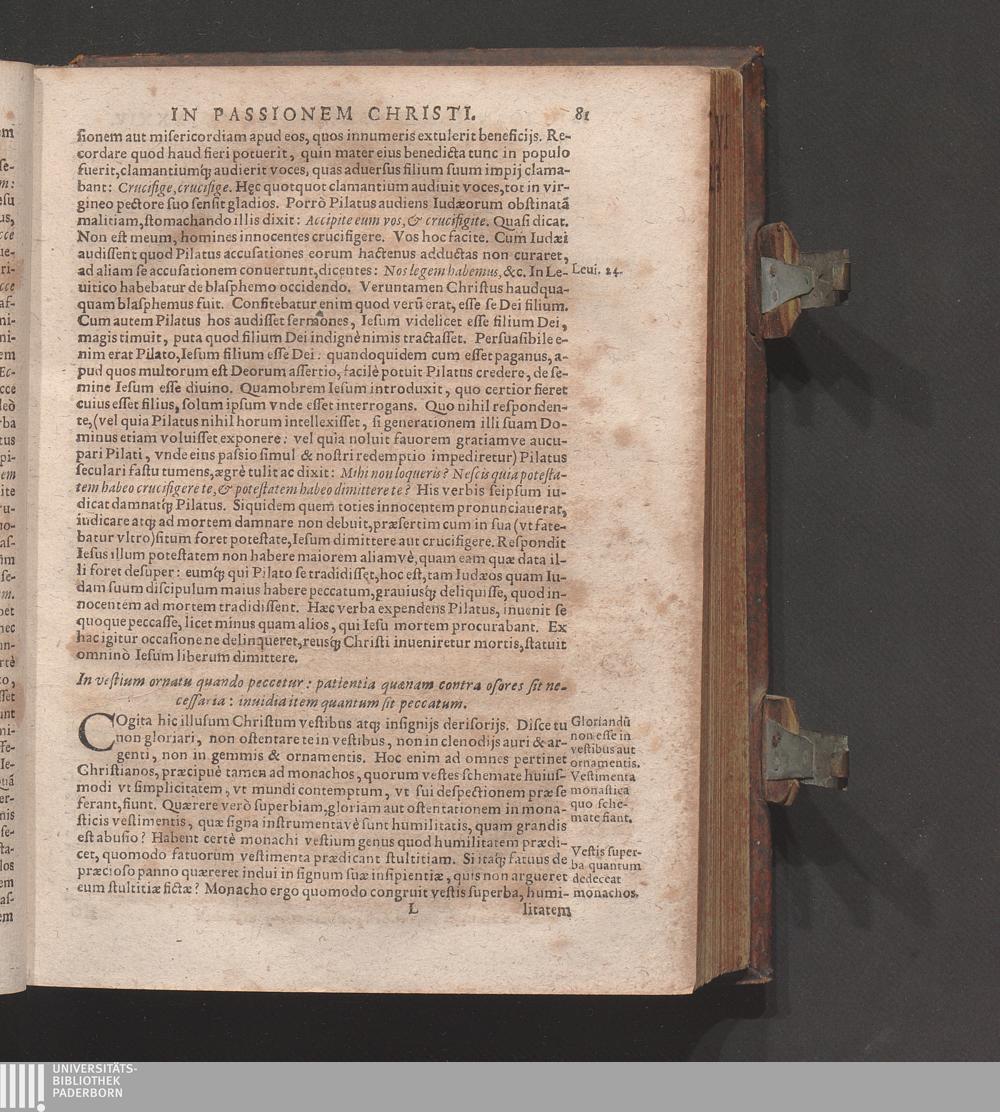 IN PASSIONEM CHRISTI. 81
sionem aut misericordiam apud eos, quos innumeris extulerit beneficijs. Re-
cordare quod haud fieri potuerit, quin mater eius benedicta tunc in populo
fuerit, clamantiumq́; audierit voces, quas aduersus filium suum impij clama-
bant: Crucifige, crucifige. Hęc quotquot clamantium audiuit voces, tot in vir-
gineo pectore suo sensit gladios. Porrò Pilatus audiens Iudæorum obstinatā
malitiam, stomachando illis dixit: Accipite eum vos, & crucifigite. Quasi dicat.
Non est meum, homines innocentes crucifigere. Vos hoc facite. Cum Iudæi
audissent quod Pilatus accusationes eorum hactenus adductas non curaret,
ad aliam se accusationem conuertunt, dicentes: Nos legem habemus, &c. In Le-
Leui. 24.
uitico habebatur de blasphemo occidendo. Veruntamen Christus haudqua-
quam blasphemus fuit. Confitebatur enim quod verū erat, esse se Dei filium.
Cum autem Pilatus hos audisset sermones, Iesum videlicet esse filium Dei,
magis timuit, puta quod filium Dei indignè nimis tractasset. Persuasibile e-
nim erat Pilato, Iesum filium esse Dei: quandoquidem cum esset paganus, a-
pud quos multorum est Deorum assertio, facilè potuit Pilatus credere, de se-
mine Iesum esse diuino. Quamobrem Iesum introduxit, quo certior fieret
cuius esset filius, solum ipsum vnde esset interrogans. Quo nihil responden-
te, (vel quia Pilatus nihil horum intellexisset, si generationem illi suam Do-
minus etiam voluisset exponere: vel quia noluit fauorem gratiamve aucu-
pari Pilati, vnde eius passio simul & nostri redemptio impediretur) Pilatus
seculari fastu tumens, ægrè tulit ac dixit: Mihi non loqueris? Nescis quia potesta-
tem habeo crucifigere te, & potestatem habeo dimittere te? His verbis seipsum iu-
dicat damnatq́; Pilatus. Siquidem quem toties innocentem pronunciauerat,
iudicare atq; ad mortem damnare non debuit, præsertim cum in sua (vt fate-
batur vltro) situm foret potestate, Iesum dimittere aut crucifigere. Respondit
Iesus illum potestatem non habere maiorem aliamvè, quam eam quæ data il-
li foret desuper: eumq́; qui Pilato se tradidissęt, hoc est, tam Iudæos quam Iu-
dam suum discipulum maius habere peccatum, grauiusq́; deliquisse, quod in-
nocentem ad mortem tradidissent. Hæc verba expendens Pilatus, inuenit se
quoque peccasse, licet minus quam alios, qui Iesu mortem procurabant. Ex
hac igitur occasione ne delinqueret, reusq́; Christi inueniretur mortis, statuit
omninò Iesum liberum dimittere.
In vestium ornatu quando peccetur: patientia quænam contra osores sit ne-
cessaria: inuidia item quantum sit peccatum.
COgita hic illusum Christum vestibus atq; insignijs derisorijs. Disce tu
non gloriari, non ostentare te in vestibus, non in clenodijs auri & ar-
genti, non in gemmis & ornamentis. Hoc enim ad omnes pertinet
Christianos, præcipuè tamen ad monachos, quorum vestes schemate huius-
modi vt simplicitatem, vt mundi contemptum, vt sui despectionem præ se
ferant, fiunt. Quærere verò superbiam, gloriam aut ostentationem in mona-
sticis vestimentis, quæ signa instrumentavè sunt humilitatis, quam grandis
est abusio? Habent certè monachi vestium genus quod humilitatem prædi-
cet, quomodo fatuorum vestimenta prædicant stultitiam. Si itaq́; fatuus de
præcioso panno quæreret indui in signum suæ insipientiæ, quis non argueret
eum stultitiæ fictæ? Monacho ergo quomodo congruit vestis superba, humi-
Gloriandū
non esse in
vestibus aut
ornamentis.
Vestimenta
monastica
quo sche-
mate fiant.
Vestis super-
ba quantum
dedeceat
monachos.
L litatem
UNIVERSITÄTS-
BIBLIOTHEK
PADERBORN